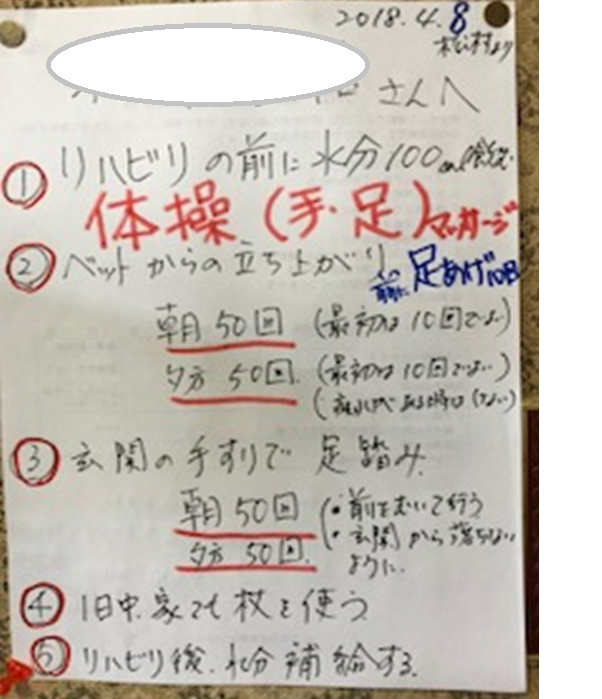 2018.4.8
松村より
さんへ
① リハビリの前に水分100ml飲む
体操(手・足)マッサージ
② ベットからの立ち上がり
前に 足あげ10回
朝50回 (最初は10回でよい)
夕方 50回. (最初は10回でよい)
③ 玄関の手すりで 足踏み.
朝50回 (・前をむいて行う
夕方 50回. ・玄関から落ちない
ように.
④ 1日中.家でも杖を使う
⑤ リハビリ後.水分補給する.